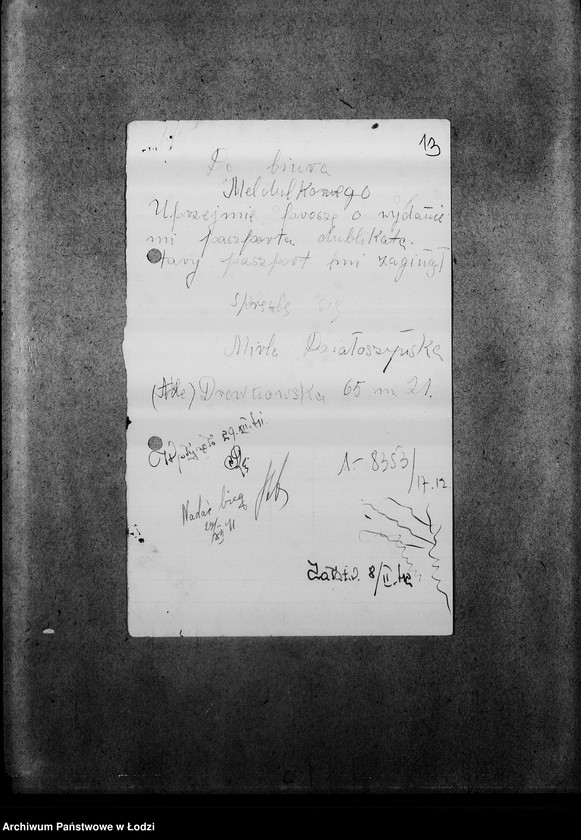 13
Do biura
Meldulkowego
Uprzejmie proszę o wydanie
mi paszportu dublikatu.
Stary paszport mi zaginął
się
Mirla Działoszyńska
Drewnowska 65 m 21.
29.XII.41
1-8353/17.12
Nadać bieg
29/XII 41
Załat. 8/II.42
Archiwum Państwowe w Łodzi